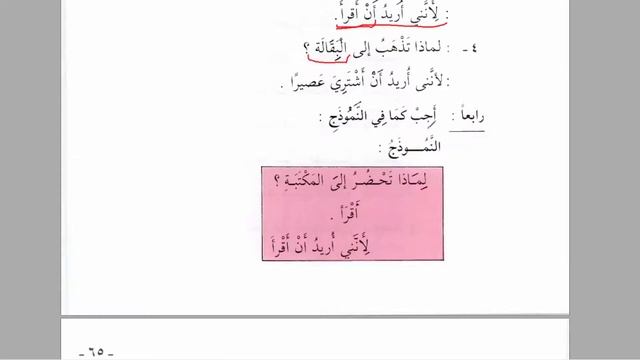 : لِأَنَّنِي أُرِيدُ أَنْ أَقرأَ.
٤ - : لماذا تَذْهَبُ إلى الْبَقَّالَة ؟
: لأنَّنى أُرِيدُ أَنْ أَشْتَرِيَ عَصيرًا .
رابعاً : أَجِبْ كَمَا فِي النَّمُوذَجِ :
النَّمُــوذَجُ :
لِمَاذا تَحْضُـرُ إلىَ المَكْتَبَةِ ؟
أَقْرَأ .
لِأَنَّنِي أُرِيدُ أَنْ أَقْرأَ
- ٦٥ -